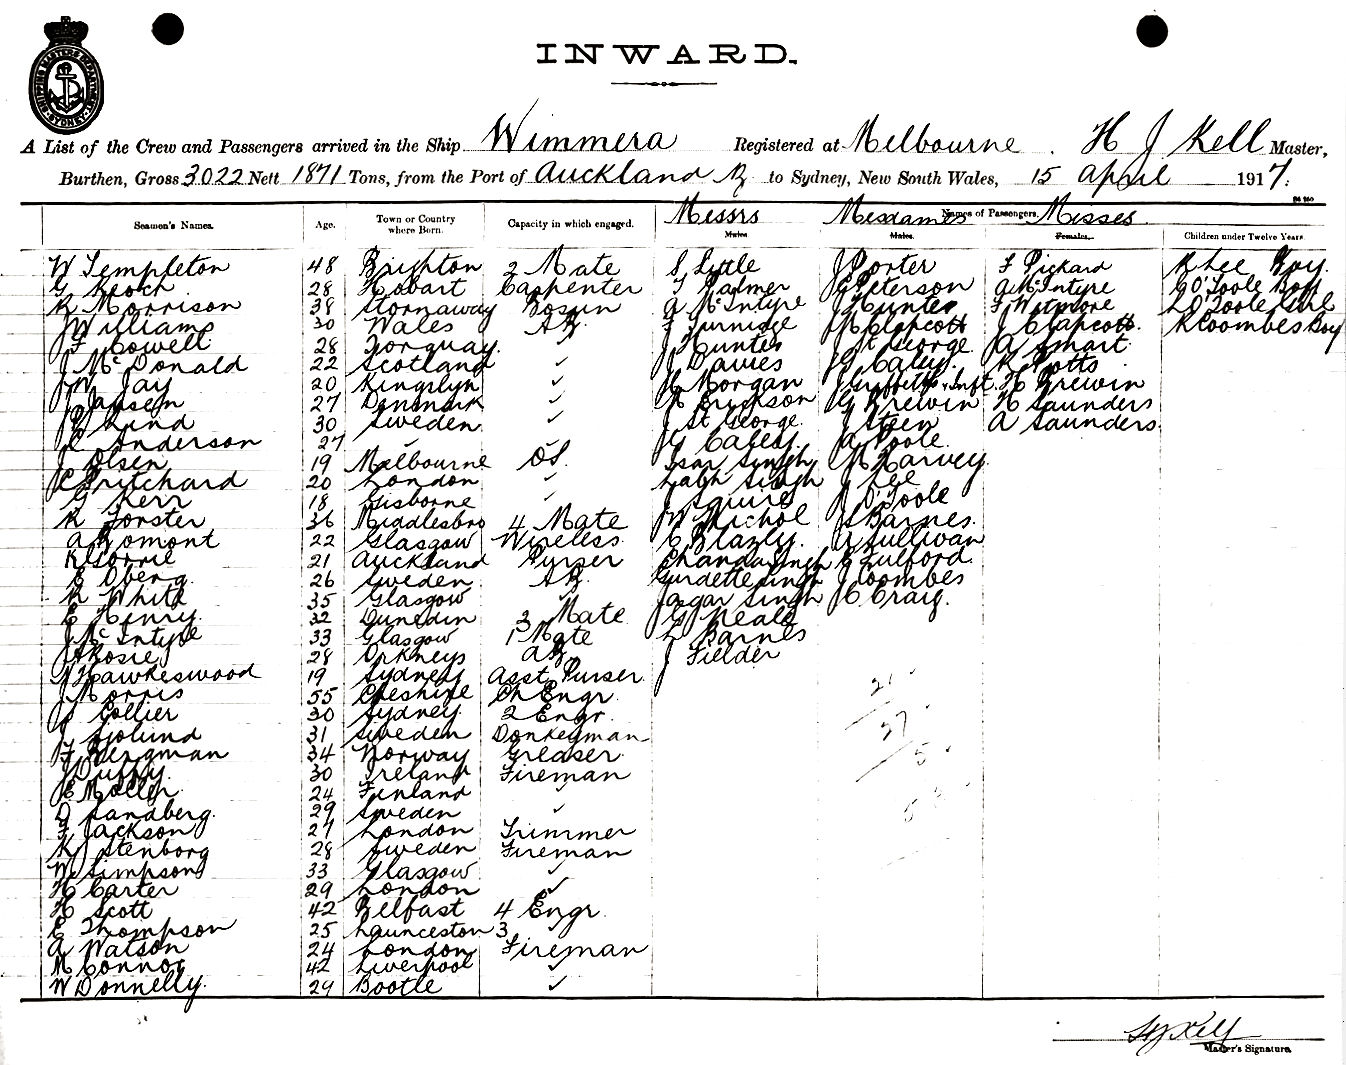 SHIPPING MASTERS DEPARTMENT SYDNEY
INWARD.
A List of the Crew and Passengers arrived in the Ship Wimmera Registered at Melbourne. H J Kell Master,
Burthen, Gross 3022 Nett 1871 Tons, from the Port of Auckland to Sydney, New South Wales, 15 April 1917.
Messrs Mesdames Names of Passengers. Misses
Seamen's Names. Age. Town or Country where Born. Capacity in which engaged. Males. Males. Females. Children under Twelve Years
W Templeton 48 Brighton 2 Mate S Little J Porter F Pickard R Lee Boy.
G Keoch 28 Hobart Carpenter F Palmer G Peterson A McIntyre G O'Toole Boy
K Morrison 38 Stornaway Bosun A McIntyre J Hunter F Witmore L O'Toole Girl
J Williams 30 Wales AB. F Turnidge M Clapcott J Clapcott. R Coombes Boy
F Cowell 28 Torquay. ✓ J Hunter J St George A Smart.
J McDonald 22 Scotland ✓ J Davies G Caley. K Potts
W Jay 20 Kingslyn ✓ H Morgan J Griffiths & Inft. H Brewin
J Jansen 27 Denmark ✓ R Erickson G Brewin H Saunders
Lund 30 Sweden ✓ J St George. J Steen A Saunders.
C Anderson 27 ✓ ✓ G Caley. A Poole.
J Olsen 19 Melbourne OS. Isar Singh Harvey.
C Pritchard 20 London ✓ Labh Singh J Lee
G Kerr 18 Gisborne ✓ J Squires J O'Toole
R Forster 36 Middlesbro 4 Mate W Nichol J Barnes.
A Lomont 22 Glasgow Wireless C Blazly. A Sullivan
R Gorrie 21 Auckland Purser Chanda Singh E Fulford.
E Oberg. 26 Sweden AB. Gurdette Singh J Coombes
R White 35 Glasgow ✓ Jagar Singh C Craig.
E Henry. 32 Dunedin 3 Mate G Neale
J McIntyre 33 Glasgow 1 Mate L Barnes
J Rosie 28 Orkneys AB. J Fielder
Hawkeswood 19 Sydney Asst Purser.
J Morris 55 Cheshire Ch Engr.
J Collier 30 Sydney. 2 Engr.
J Sjolund 31 Sweden Donkeyman
F Bergman 34 Norway Greaser
J Duffy. 30 Ireland Fireman
E Moller 24 Finland ✓
D Sandberg. 29 Sweden ✓
F Jackson 27 London Trimmer
K Stenborg 28 Sweden Fireman
W Simpson 33 Glasgow ✓
H Carter 29 London ✓
H Scott 42 Belfast 4 Engr.
E Thompson 25 Launceston 3 ✓
A Watson 24 London Fireman
M Connor 42 Liverpool ✓
W Donnelly. 29 Bootle ✓
21
37
5
HJ Kell
Master's Signature.